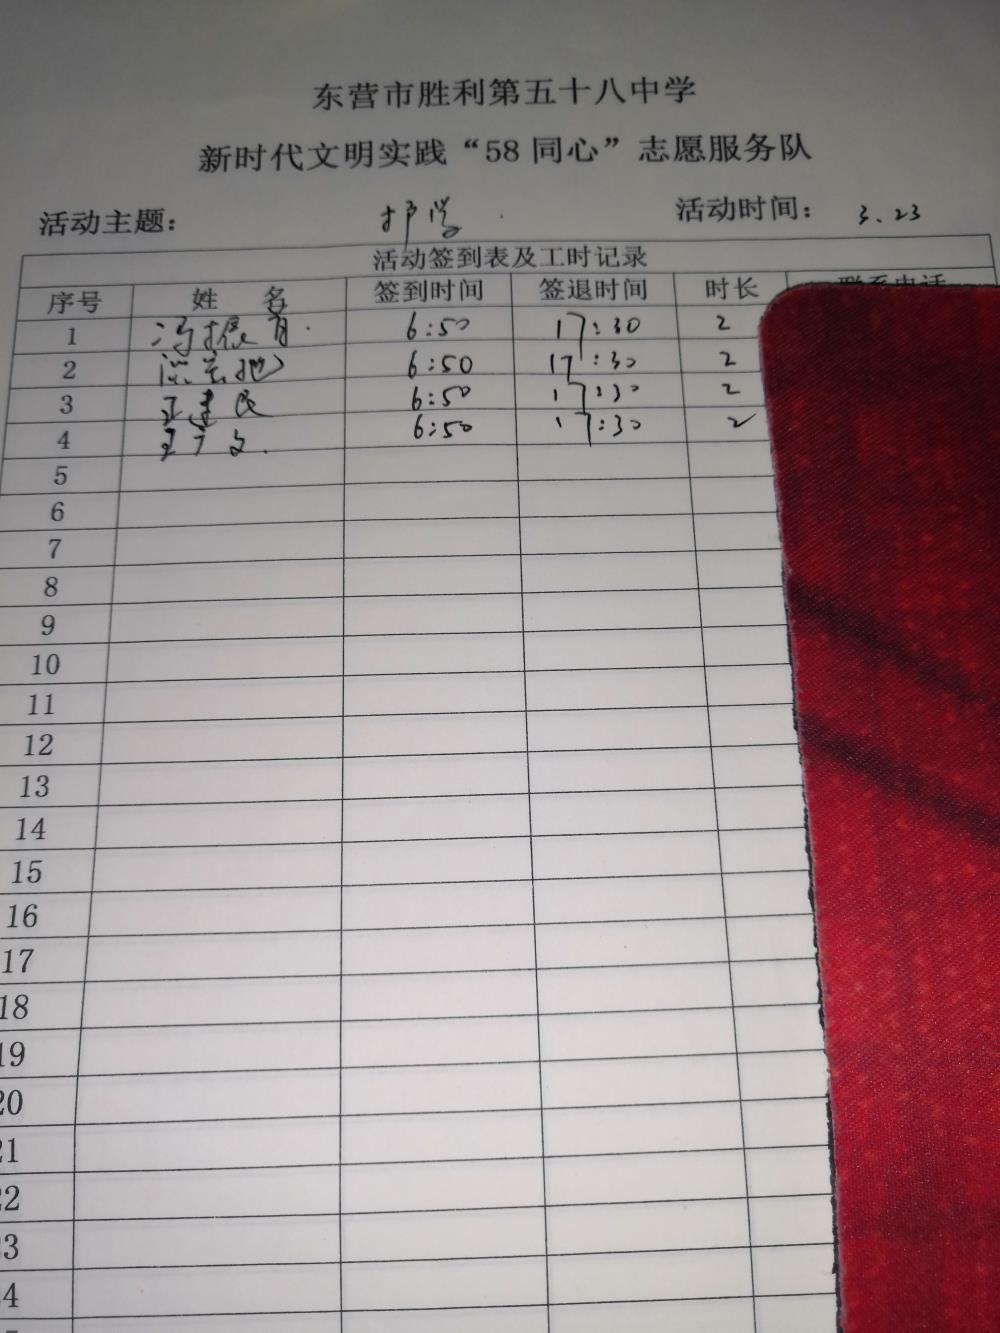 东营市胜利第五十八中学
新时代文明实践“58 同心”志愿服务队
活动主题： 护学 活动时间： 3.23
活动签到表及工时记录
序号 姓 名 签到时间 签退时间 时长 联系电话
1 冯振育 6:50 17:30 2
2 6:50 17:30 2
3 王建民 6:50 17:30 2
4 王广文 6:50 17:30 2
5
6
7
8
9
10
11
12
13
14
15
16
17
18
19
20
21
22
23
24